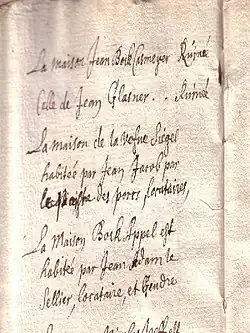 La maison Jean Bock Casmeyer Ruiné
Celle de Jean Glasner . . Ruinée
La maison de la vefue Siegel
habitée par Jean Jacob par
des porrs, Locataires,
La Maison Bock Appel est
habitée par Jean Adam le
Sellier, Locataire, et Gendre